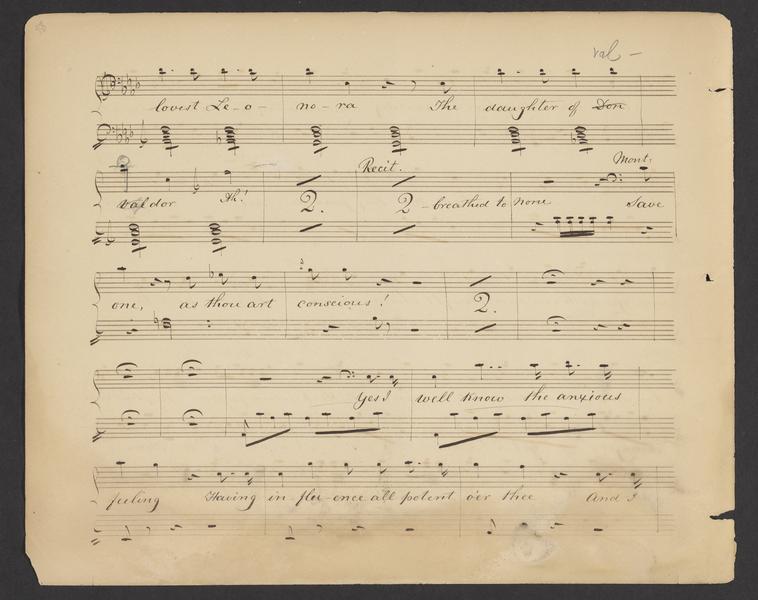 val –
lovest Le-o- no-ra The daughter of Don
Recit. Mont:
valdor Ah! 2. 2 - breathed to none Save
one, as thou art conscious! 2.
Yes I well know the anxious
feeling Having in flu-ence all potent o'er thee And I